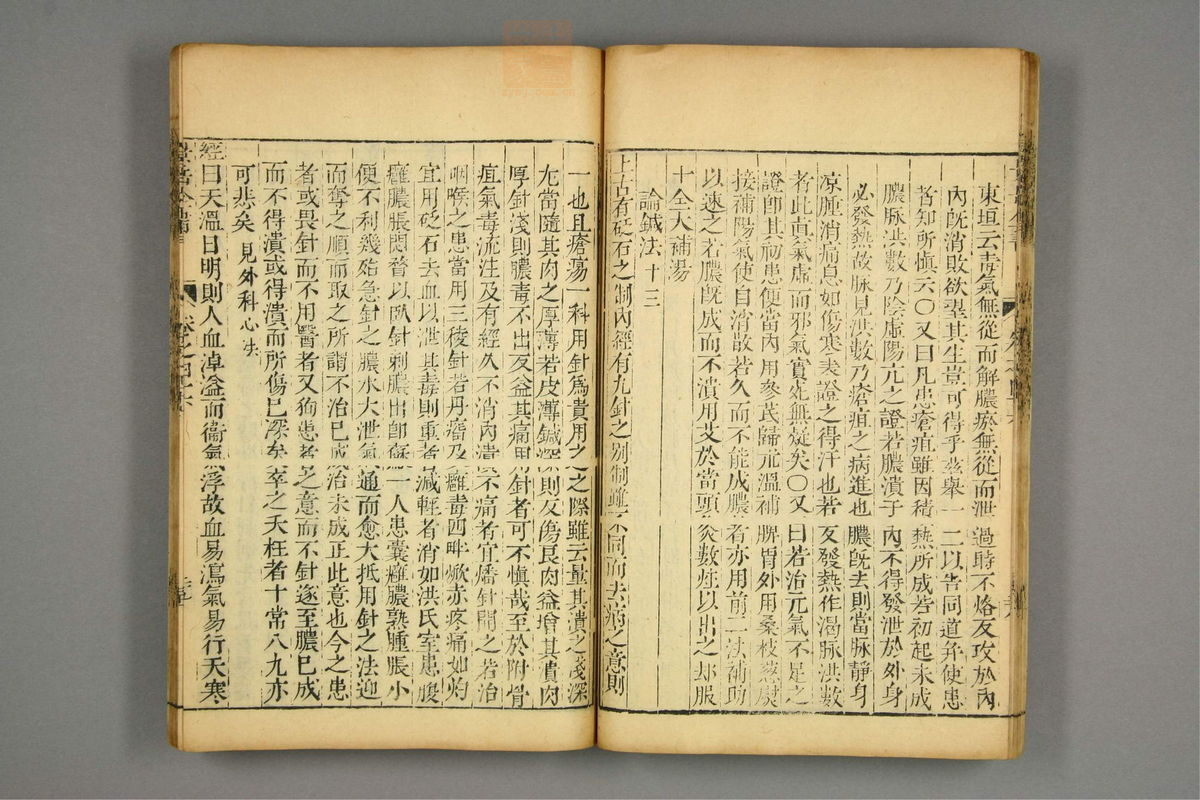 東垣云毒氣無從而解膿瘀無從而泄過時不烙反攻於內
內既消敗欲望其生豈可得乎茲舉一二以告同道并使患
者知所慎云○又曰凡患瘡疽雖因積熱所成若初起未成
膿脉洪數乃陰虛陽亢之證若膿潰于內不得發泄於外身
必發熱故脉見洪數乃瘡疽之病進也膿既去則當脉靜身
凉腫消痛息如傷寒表證之得汗也若反發熱作渴脉洪數
者此真氣虛而邪氣實死無疑矣○又曰若治元氣不足之
證即其初患便當內用參芪歸朮溫補脾胃外用桑枝葱熨
接補陽氣使自消散若久而不能成膿者亦用前二法補助
以速之若膿既成而不潰用艾於當頭灸數壯以出之却服
十全大補湯
論鍼法十三
上古有砭石之制內經有九針之別制雖不同而去病之意則
一也且瘡瘍一科用針爲貴用之之際雖云量其潰之淺深
尤當隨其肉之厚薄若皮薄鍼深則反傷良肉益增其潰肉
厚針淺則膿毒不出反益其痛用針者可不慎哉至於附骨
疽氣毒流注及有經久不消內潰不痛者宜燔針開之若治
咽喉之患當用三稜針若丹瘤及癰毒四畔焮赤疼痛如灼
宜用砭石去血以泄其毒則重者減輕者消如洪氏室患腹
癰膿脹悶瞀以臥針刺膿出即蘇一人患囊癰膿熟腫脹小
便不利幾殆急針之膿水大泄氣通而愈大抵用針之法迎
而奪之順而取之所謂不治已成治未成正此意也今之患
者或畏針而不用醫者又狥患者之意而不針遂至膿已成
而不得潰或得潰而所傷已深矣卒之夭枉者十常八九亦
可悲矣 見外科心法
經曰天溫日明則人血淖溢而衞氣浮故血易瀉氣易行天寒
景岳全書
卷之四十六